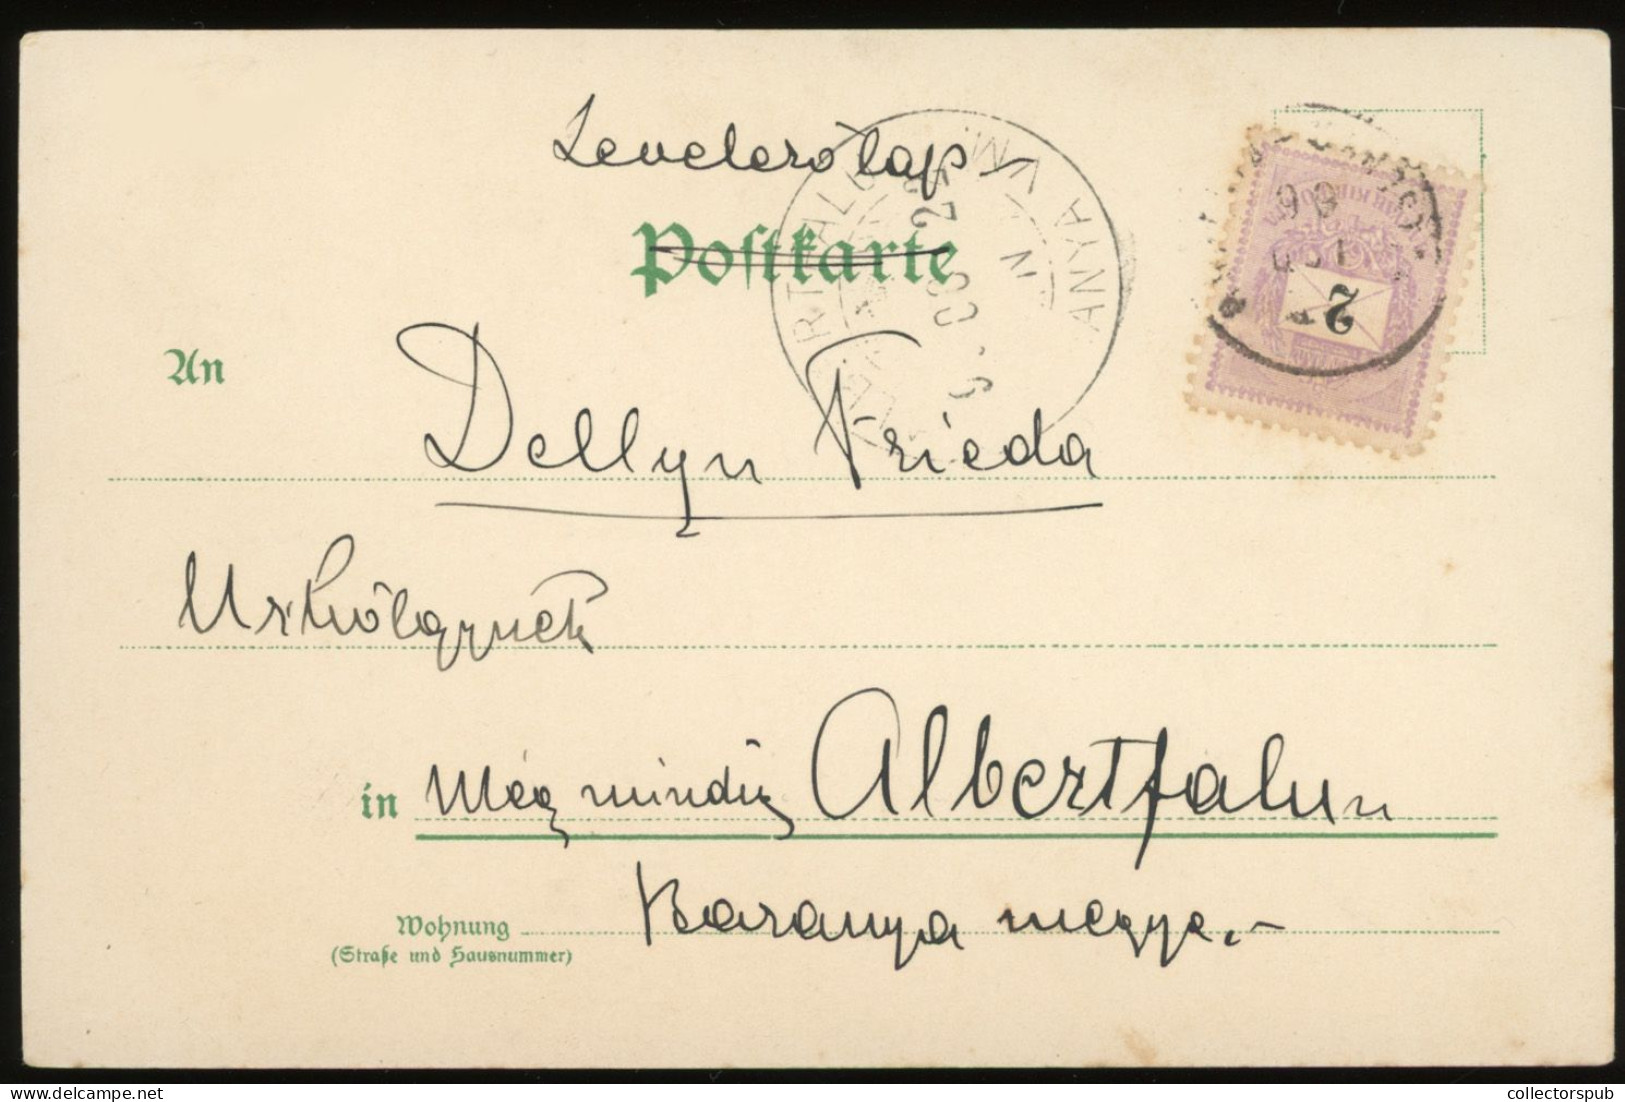 Levelező lap
Postkarte
2
An
Dellyn Frieda
Urhölgynek
in Még mindig Albertfalun
Baranya megye.-
Wohnung
(Straße und Hausnummer)
collectorspub